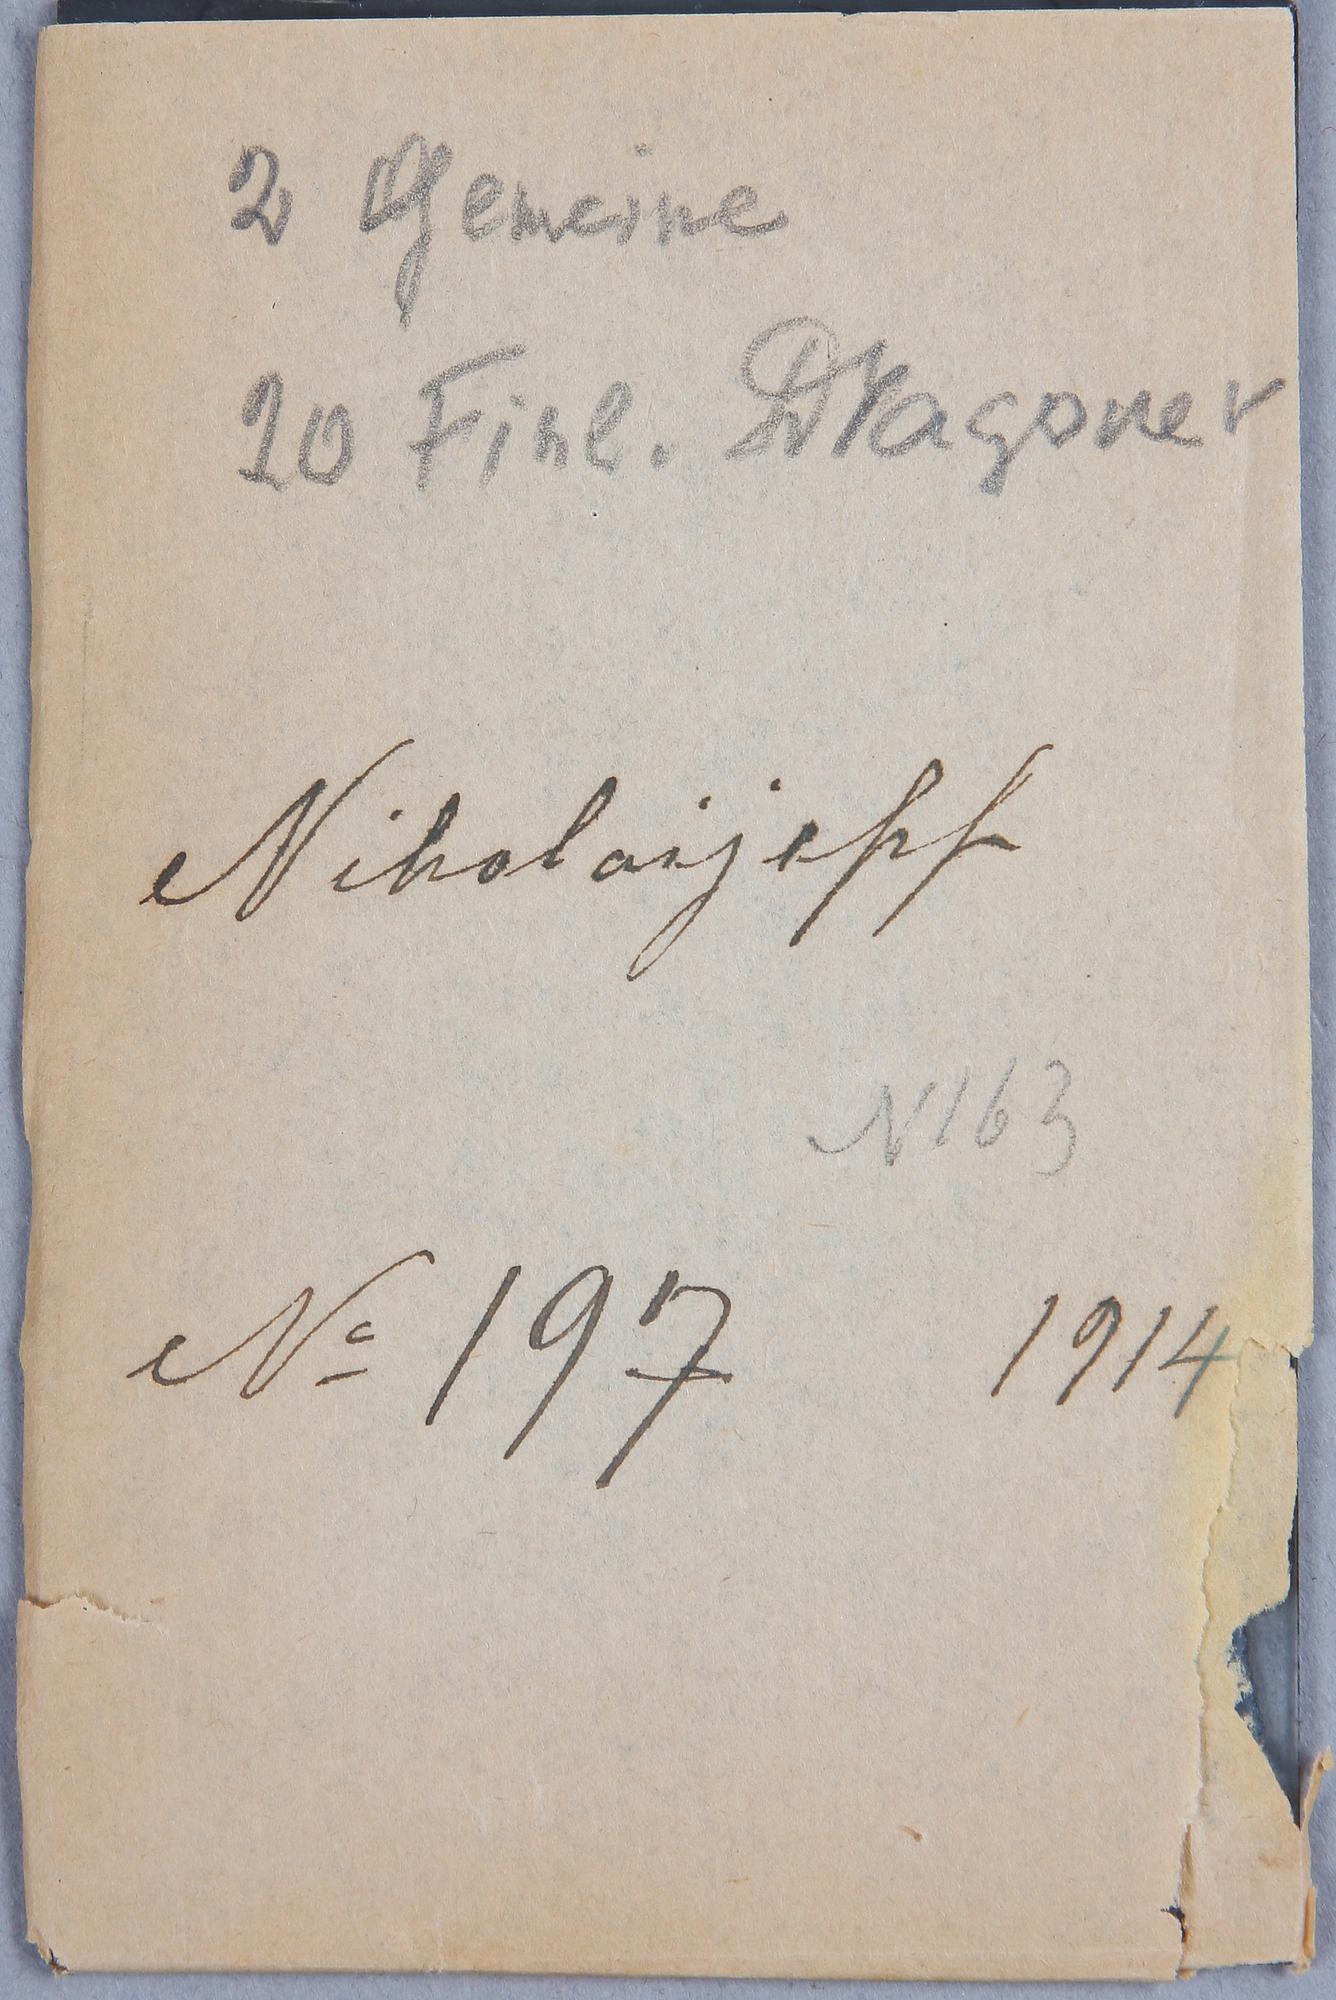 2 Gemeine
20 Finl. Dragoner
Nikolaijeff
N 163
No 197 1914